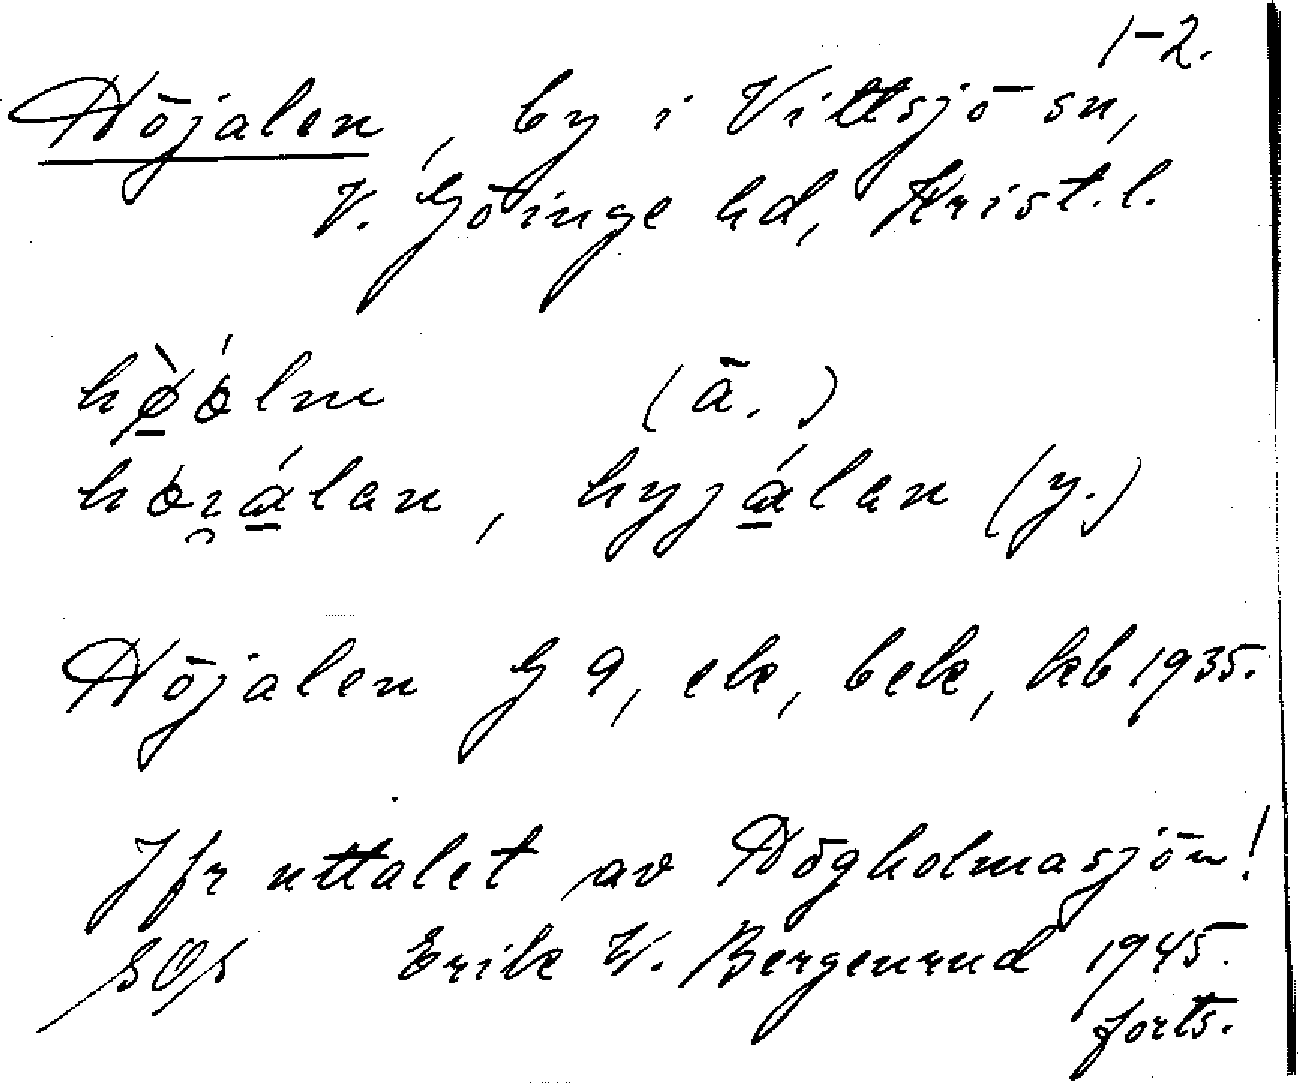 1-2.
Höjalen, by i Vittsjö sn,
V. Göinge hd, Krist.l.
(ä.)
hyjálan (y.)
Höjalen G 9, ek, bek, kb 1935.
Jfr uttalet av Högholmasjön!
SOS Erik W. Bergenrud 1945.
forts.